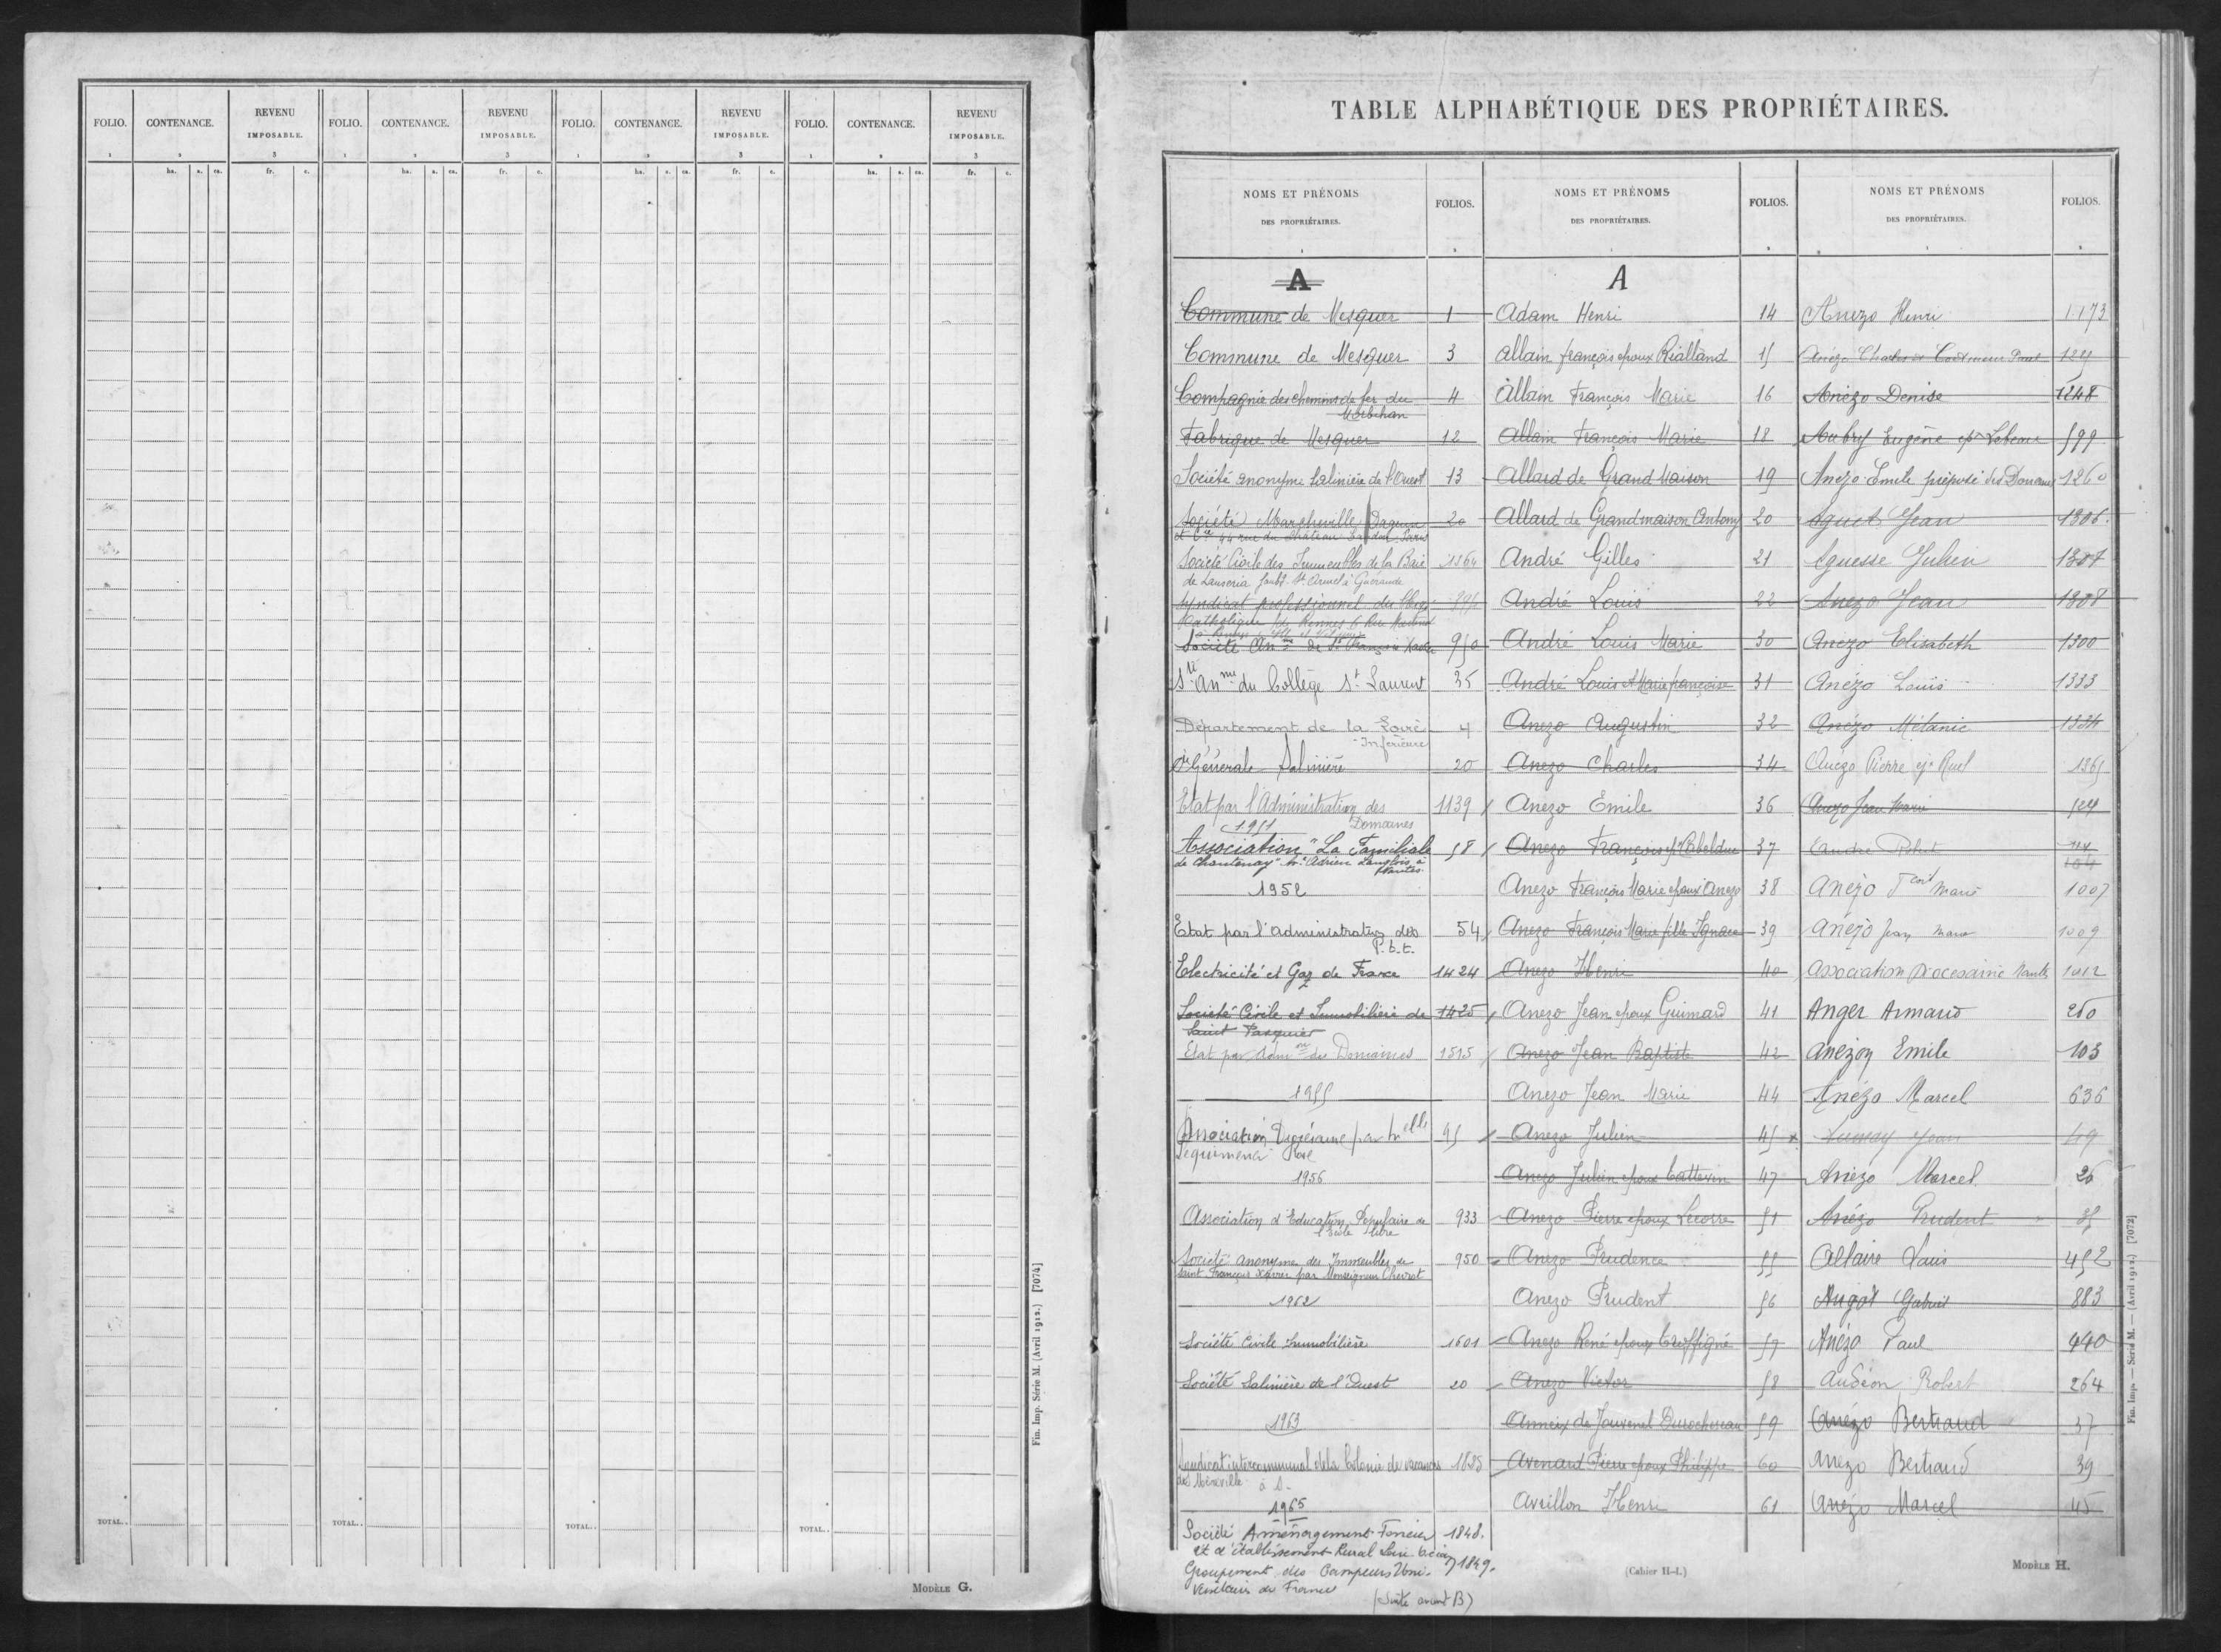 FOLIO. CONTENANCE. REVENU IMPOSABLE. FOLIO. CONTENANCE. REVENU IMPOSABLE. FOLIO. CONTENANCE. REVENU IMPOSABLE. FOLIO. CONTENANCE. REVENU IMPOSABLE.
1 2 3 1 2 3 1 2 3 1 2 3
ha. a. ca. fr. c. ha. a. ca. fr. c. ha. a. ca. fr. c. ha. a. ca. fr. c.
TOTAL.. TOTAL.. TOTAL.. TOTAL..
Fin. Imp. Série M. (Avril 1912.) [7074]
MODÈLE G.
TABLE ALPHABÉTIQUE DES PROPRIÉTAIRES.
NOMS ET PRÉNOMS
DES PROPRIÉTAIRES.
FOLIOS.
A
Commune de Mesquer 1
Commune de Mesquer 3
Compagnie des chemins de fer du 4
Morbihan
Fabrique de Mesquer 12
Société anonyme Salinière de l'Ouest 13
Société 20
Société Civile des Immeubles de la Baie 1364
de St. Armel à Guérande
Syndicat professionnel
Société An.me de St François Xavier 950
Sté An.me du Collège St Laurent 35
Département de la Loire 4
Inférieure
Sté Générale Salinière 20
Etat par l'Administration des 1139
Domaines
1951
Association "La Familiale 58
de Chantenay" Mr Adrien Langlois à
Nantes
1952
Etat par l'administration des 54
P.t.t.
Electricité et Gaz de France 1424
Société Civile et Immobilière de 1425
Saint Pasquier
Etat par Adm.on des Domaines 1515
1955
Association Diocésaine par Melle 95
1956
Association d'Education Populaire de 933
l'Ecole libre
Société anonyme des Immeubles de 950
Saint François Xavier par Monseigneur
1962
Société Civile Immobilière 1601
Société Salinière de l'Ouest 20
1963
Syndicat intercommunal de la Colonie de vacances
1965
Société Aménagement Foncier 1848.
et d'établissement Rural
Groupement des Campeurs Uni- 1849.
versitaires de France
(Suite avant B)
NOMS ET PRÉNOMS
DES PROPRIÉTAIRES.
FOLIOS.
A
Adam Henri 14
Allain françois époux Rialland 15
Allain François Marie 16
Allain François Marie 18
Allard de Grand Maison 19
Allard de Grandmaison Antony 20
André Gilles 21
André Louis 22
André Louis Marie 30
André Louis et Marie françoise 31
Anezo Augustin 32
Anezo Charles 34
Anezo Emile 36
Anezo François 37
Anezo François Marie époux Anezo 38
Anezo François Marie fille Ignace 39
Anezo Henri 40
Anezo Jean époux Guimard 41
Anezo Jean Baptiste 42
Anezo Jean Marie 44
Anezo Julien 45
Anezo Julien époux Cattevin 47
Anezo Pierre époux Lecorre 51
Anezo Prudence 55
Anezo Prudent 56
Anezo René époux 57
Anezo Victor 58
Anneix de Jouvenel 59
Avenard Pierre époux Philippe 60
Avrillon Henri 61
NOMS ET PRÉNOMS
DES PROPRIÉTAIRES.
FOLIOS.
Anezo Henri 1173
Anézo Charles
Anézo Denise 1248
Aubry Eugène ép. Lebeau 599
Anézo Emile préposé des Douanes 1260
Jean 1306
Aguesse Julien 1307
Anezo Jean 1308
Anezo Elisabeth 1300
Anézo Louis 1333
Anézo Mélanie 1334
Anezo Pierre ép. Ruel 1365
Anezo Jean Marie
Robert
Anézo Marie 1007
Anézo Jean Marie 1009
Association Diocesaine Nantes 1012
Anger Armand 250
Anezoy Emile 103
Anézo Marcel 636
Jean 49
Anézo Marcel 26
Anézo Prudent 35
Allaire Louis 452
Gabriel 883
Anézo Paul 440
Audéon Robert 264
Anézo Bertrand 37
Anezo Bertrand 39
Anézo Marcel 45
Fin. Imp. — Série M. — (Avril 1912.) [7072]
(Cahier H-1.)
MODÈLE H.